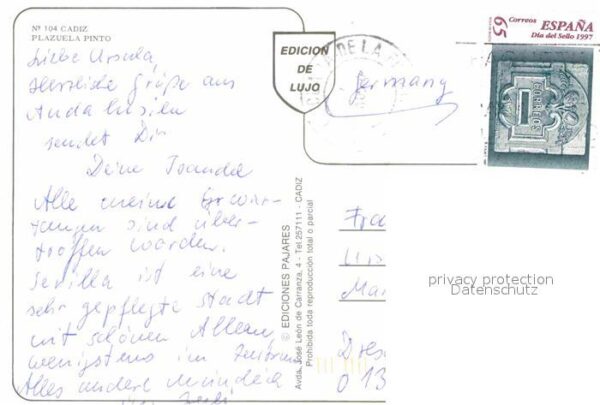 Nº 104 CADIZ
PLAZUELA PINTO
Liebe Ursula,
Herzliche Grüße aus
Andalusien
sendet Dir
Deine
Alle meine Erwar-
tungen sind über-
troffen worden.
Sevilla ist eine
sehr gepflegte Stadt
mit schönen Alleen,
wenigstens im Zentrum
Alles andere mündlich
EDICION
DE
LUJO
Germany
65
Correos
ESPAÑA
Día del Sello 1997
CORREOS
© EDICIONES PAJARES
Avda. José León de Carranza, 4 - Tel. 257111 - CADIZ
Prohibida toda reproducción total o parcial
Fra
Ma
Dres
013
privacy protection
Datenschutz